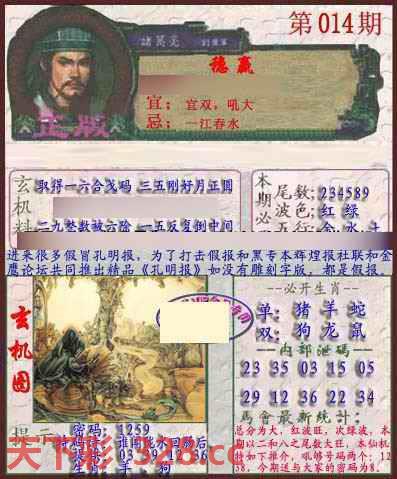 第014期
諸葛亮
稳赢
正版
宜：宜双，吼大
忌：一江春水
玄机料
取得一六合戊码 三五刚好月正圆
二九整数被六除 一五反复倒中间
本期必
尾数:234589
波色:红 绿
五行:金 水 土
进来很多假冒孔明报，为了打击假报和黑专本辉煌报社联和金
鹰论坛共同推出精品《孔明报》如没有雕刻字版，都是假报。
玄机图
必开生肖
单: 猪 羊 蛇
双: 狗 龙 鼠
内部泄码
23 35 03 15 05
29 12 36 22 34
馬會最新統计:
总分为大，红波旺，次绿波，本
期以二和八之尾数大旺，本仙机
特如下推介，吼够号码两个：12
38，今期送与大家的密码为8。
提示
密码: 1259
03 29 12 36
生肖: 羊 狗
天下彩 328.cc